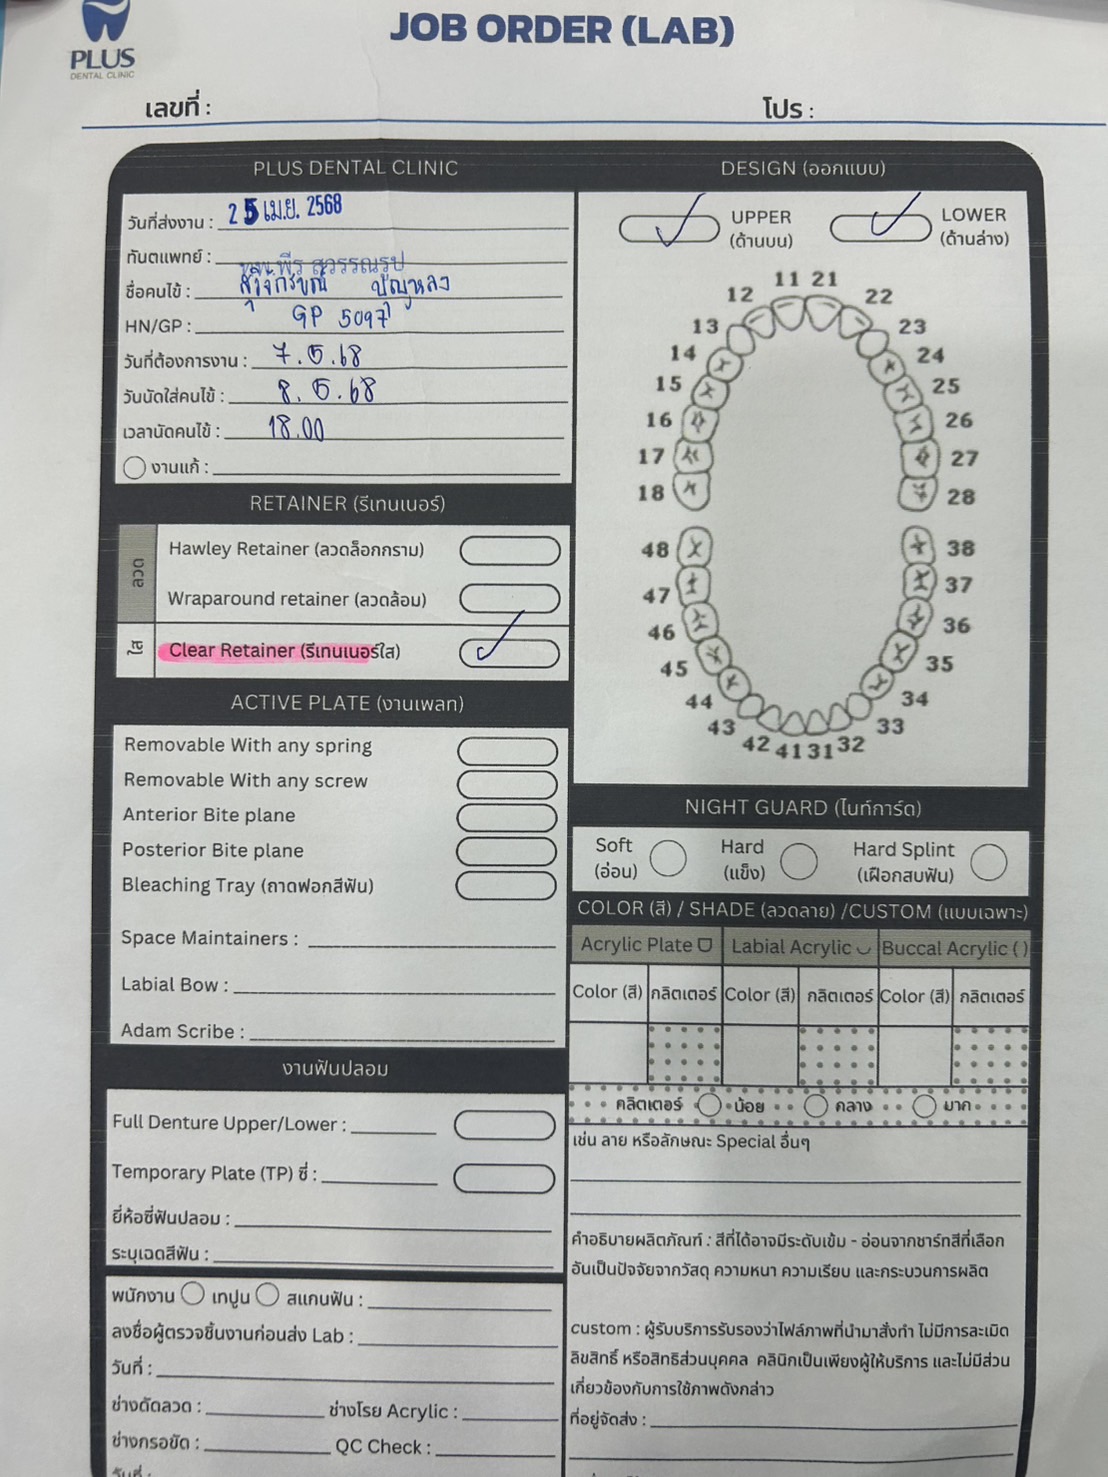 PLUS
DENTAL CLINIC
JOB ORDER (LAB)
เลขที่ :
โปร :
PLUS DENTAL CLINIC
วันที่ส่งงาน : 25 เม.ย. 2568
ทันตแพทย์ : ทพ. พีร สุวรรณรูป
ชื่อคนไข้ :
HN/GP : GP 5097
วันที่ต้องการงาน : 7.5.68
วันนัดใส่คนไข้ : 8.5.68
เวลานัดคนไข้ : 18.00
งานแก้ :
RETAINER (รีเทนเนอร์)
ลวด
Hawley Retainer (ลวดล็อกกราม)
Wraparound retainer (ลวดล้อม)
ใส
Clear Retainer (รีเทนเนอร์ใส)
ACTIVE PLATE (งานเพลท)
Removable With any spring
Removable With any screw
Anterior Bite plane
Posterior Bite plane
Bleaching Tray (ถาดฟอกสีฟัน)
Space Maintainers :
Labial Bow :
Adam Scribe :
งานฟันปลอม
Full Denture Upper/Lower :
Temporary Plate (TP) ซี่ :
ยี่ห้อซี่ฟันปลอม :
ระบุเฉดสีฟัน :
พนักงาน เทปูน สแกนฟัน :
ลงชื่อผู้ตรวจชิ้นงานก่อนส่ง Lab :
วันที่ :
ช่างดัดลวด : ช่างโรย Acrylic :
ช่างกรอขัด : QC Check :
วันที่ :
DESIGN (ออกแบบ)
UPPER
(ด้านบน)
LOWER
(ด้านล่าง)
11 21
12 22
13 23
14 24
15 25
16 26
17 27
18 28
48 38
47 37
46 36
45 35
44 34
43 33
42 41 31 32
NIGHT GUARD (ไนท์การ์ด)
Soft
(อ่อน)
Hard
(แข็ง)
Hard Splint
(เฝือกสบฟัน)
COLOR (สี) / SHADE (ลวดลาย) /CUSTOM (แบบเฉพาะ)
Acrylic Plate Labial Acrylic Buccal Acrylic ( )
Color (สี) กลิตเตอร์ Color (สี) กลิตเตอร์ Color (สี) กลิตเตอร์
กลิตเตอร์ น้อย กลาง มาก
เช่น ลาย หรือลักษณะ Special อื่นๆ
คำอธิบายผลิตภัณฑ์ : สีที่ได้อาจมีระดับเข้ม - อ่อนจากชาร์ทสีที่เลือก
อันเป็นปัจจัยจากวัสดุ ความหนา ความเรียบ และกระบวนการผลิต
custom : ผู้รับบริการรับรองว่าไฟล์ภาพที่นำมาสั่งทำ ไม่มีการละเมิด
ลิขสิทธิ์ หรือสิทธิส่วนบุคคล คลินิกเป็นเพียงผู้ให้บริการ และไม่มีส่วน
เกี่ยวข้องกับการใช้ภาพดังกล่าว
ที่อยู่จัดส่ง :